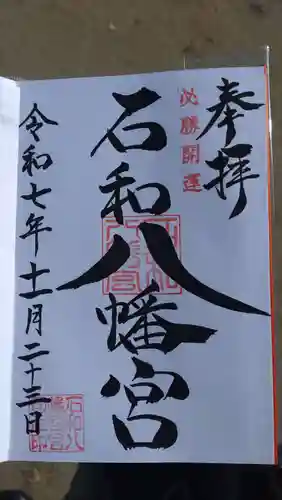 奉拝
必勝開運
石和八幡宮
令和七年十一月二十三日